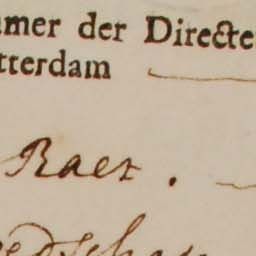 amer der Directe
tterdam
Raet.